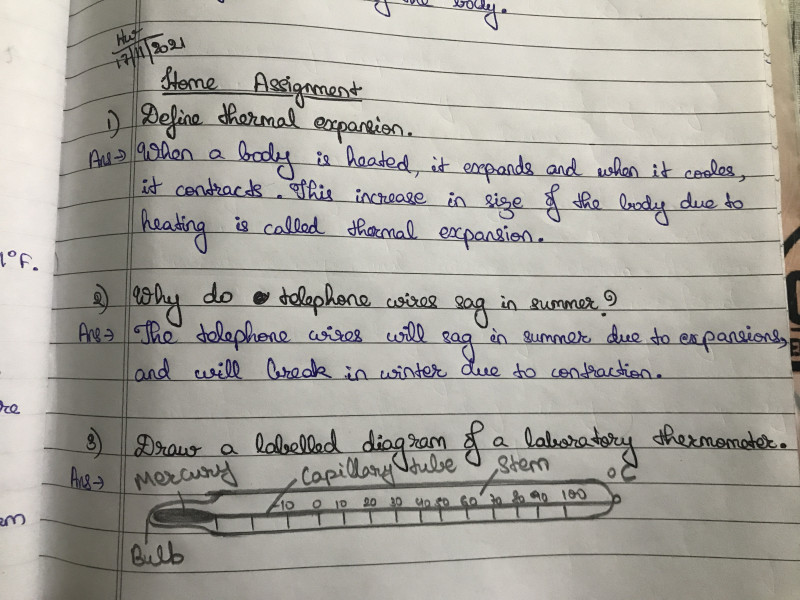 of the body.
H.W
17/11/2021
Home Assignment
1) Define thermal expansion.
Ans→ When a body is heated, it expands and when it cooles,
it contracts. This increase in size of the body due to
heating is called thermal expansion.
1°F.
2) Why do telephone wires sag in summer?
Ans→ The telephone wires will sag in summer due to expansions,
and will break in winter due to contraction.
re
3) Draw a labelled diagram of a laboratory thermometer.
Ans→ Mercury Capillary tube Stem °C
-10 0 10 20 30 40 50 60 70 80 90 100
em
Bulb